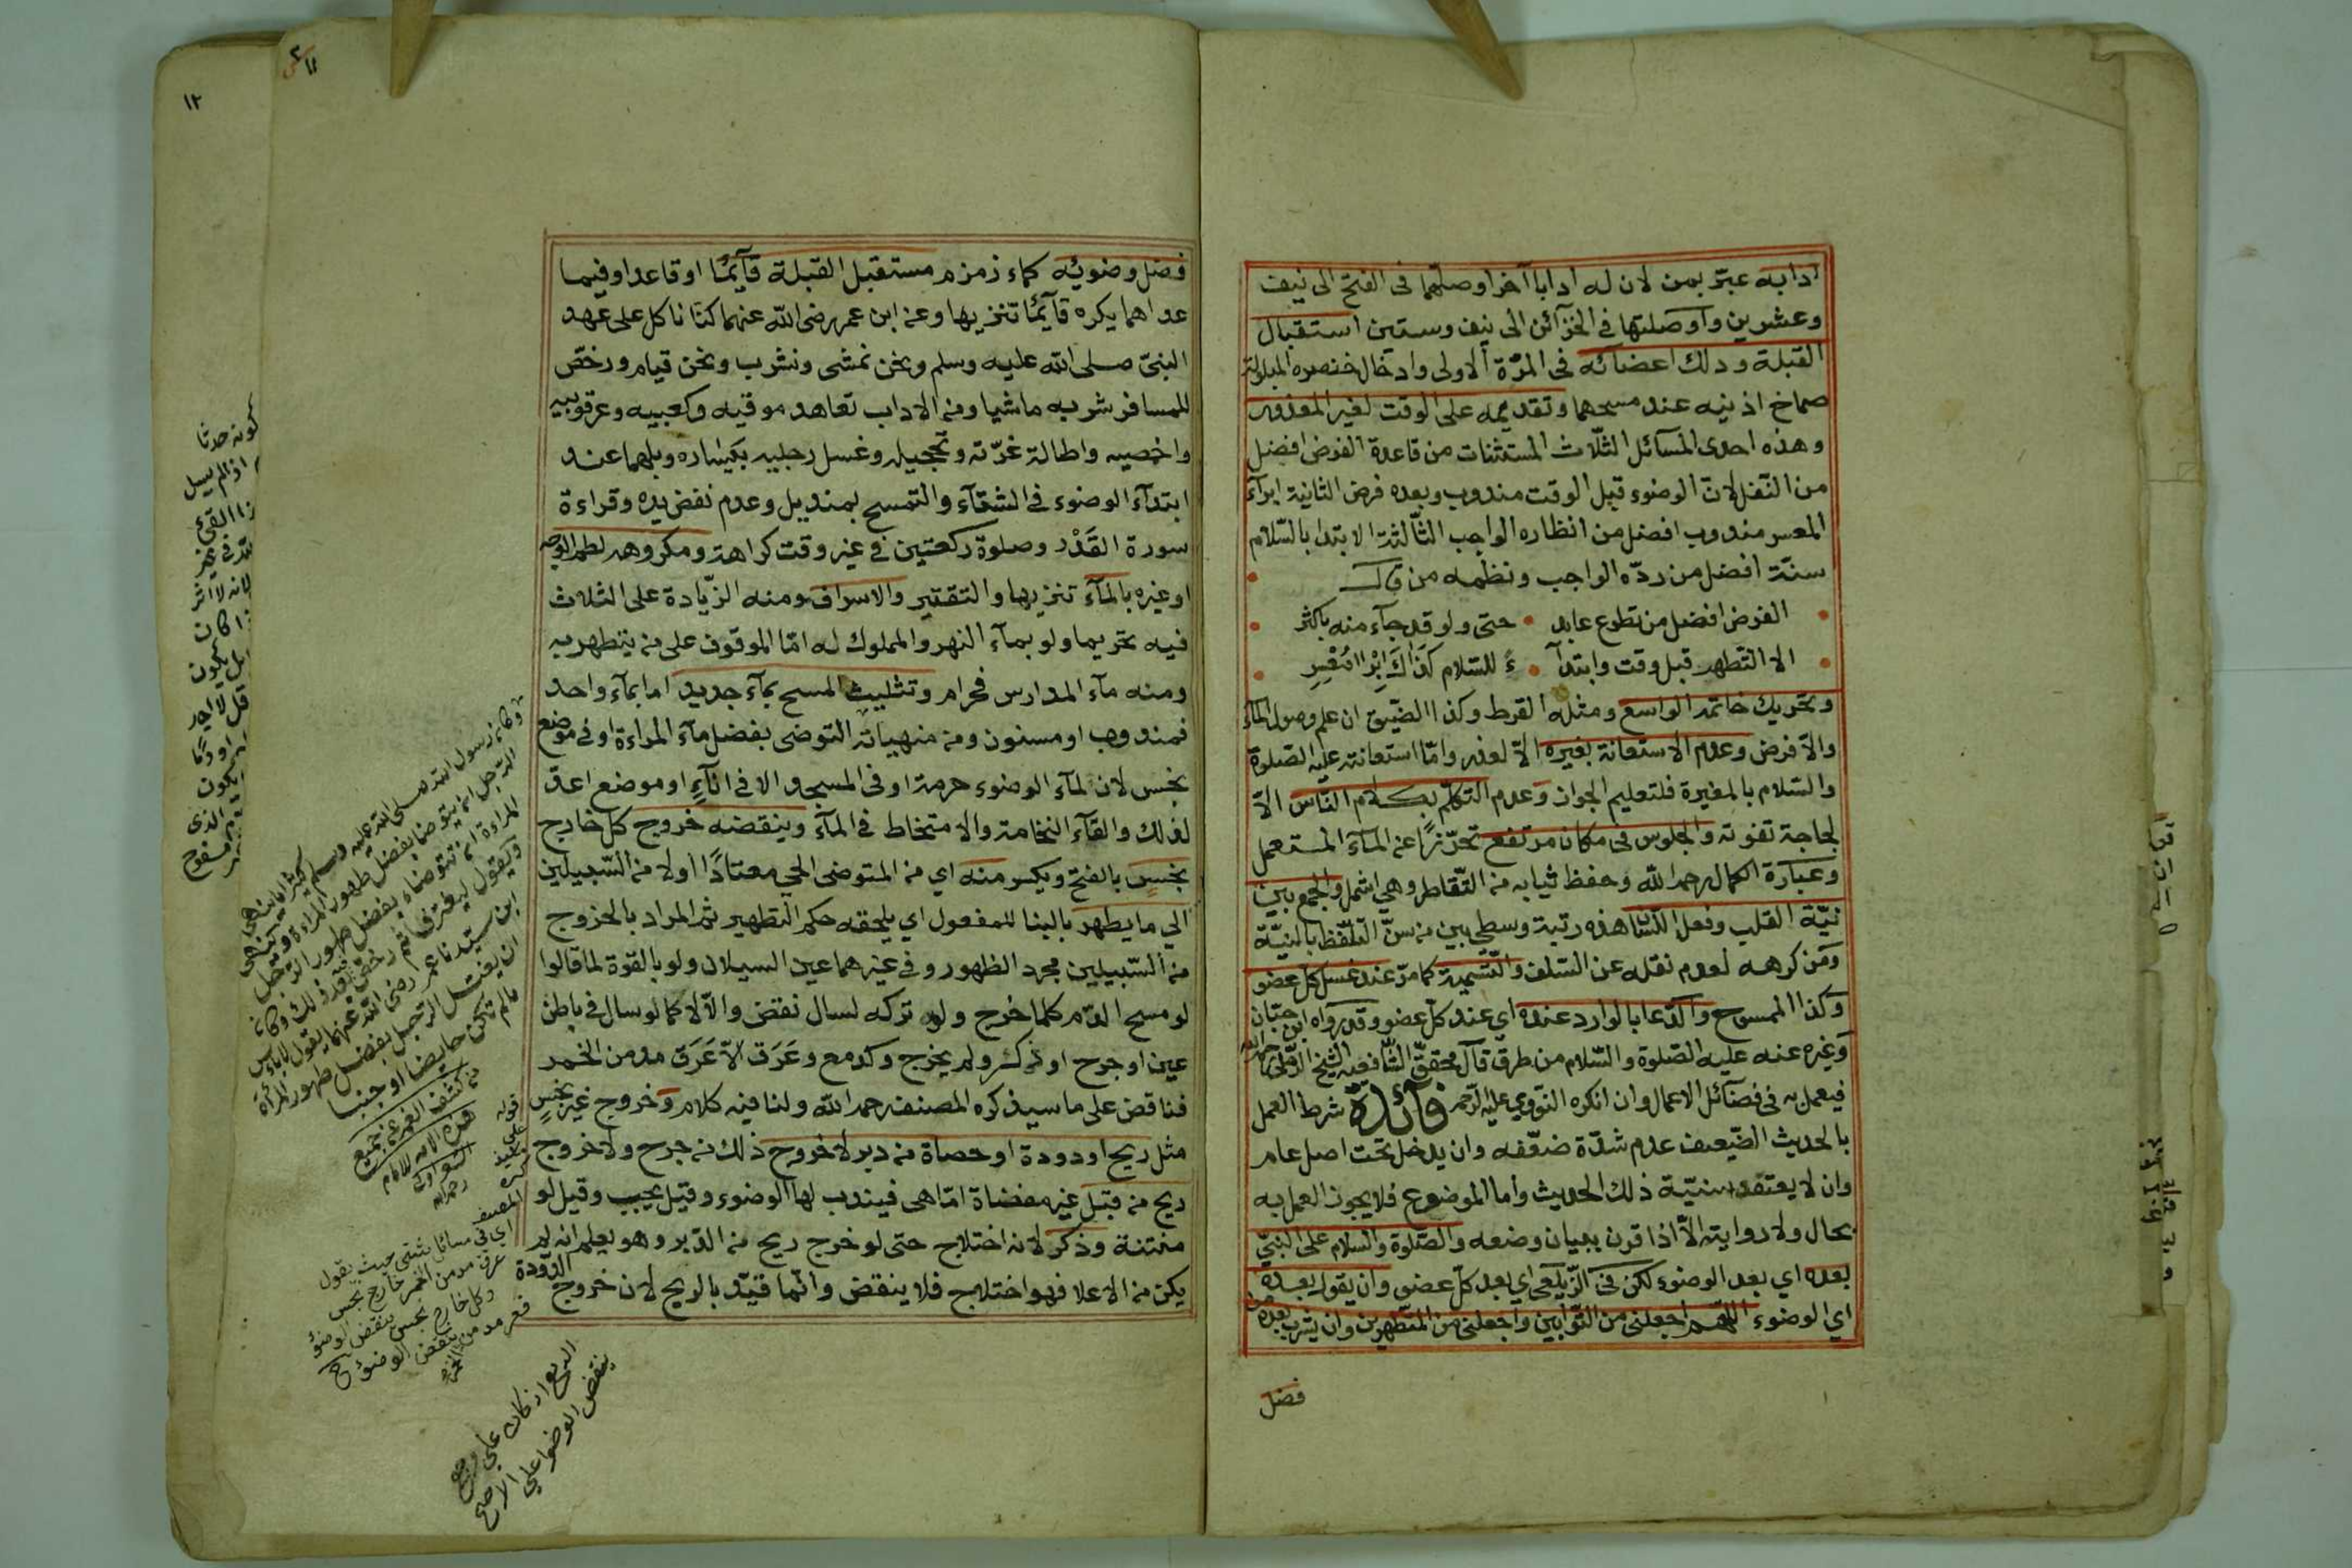 ادابه عبّر بمن لان له ادابا آخر اوصلها فى الفتح الى نيف
وعشرين واوصلتها فى الخزآئن الى نيف وستين استقبال
القبلة ودلك اعضائه فى المرّة الاولى وادخال خنصره المبلولة
صماخ اذنيه عند مسحهما وتقديمه على الوقت لغير المعذور
وهذه احدى المسآئل الثلاث المستثنات من قاعدة الفرض افضل
من النفل لانّ الوضوء قبل الوقت مندوب وبعده فرض الثانية ابرآء
المعسر مندوب افضل من انظاره الواجب الثّالثة الابتدا بالسّلام
سنّة افضل من ردّه الواجب ونظمه من قال
الفرض افضل من تطوع عابد • حتى ولو قد جآء منه باكثر
الا التّطهر قبل وقت وابتدآ • ءً للسّلام كذاك ابرا مُعْسِرِ
وتحريك خاتمه الواسع ومثله القرط وكذا الضّيق ان علم وصول المآء
والاّ فرض وعدم الاستعانة بغيره الاّ لعذر وامّا استعانته عليه الصّلوة
والسّلام بالمغيرة فلتعليم الجواز وعدم التكلّم بكلام النّاس الاّ
لحاجة تفوته والجلوس فى مكان مرتفع تحرّزًا عن المآء المستعمل
وعبارة الكمال رحمه الله وحفظ ثيابه من التّقاطر وهي اشمل والجمع بين
نيّة القلب وفعل اللّسان هذه رتبة وسطى بين من سنّ التلفّظ بالنيّة
ومن كرهه لعدم نقله عن السّلف والتّسمية كما مرّ عند غسل كلّ عضو
وكذا الممسوح والدّعا بالوارد عنده اي عند كلّ عضو وقد رواه ابن حبّان
وغيره عنه عليه الصّلوة والسّلام من طرق قال محقّق الشّافعيّة الشيخ الرّملى رحمه الله
فيعمل به فى فضآئل الاعمال وان انكره النّووي عليه الرّحمه فآئدة شرط العمل
بالحديث الضّعيف عدم شدّة ضعّفه وان يدخل تحت اصل عام
وان لا يعتقد سنيّة ذلك الحديث وأما الموضوع فلا يجوز العمل به
بحال ولا روايته الاّ اذا قرن ببيان وضعه والصّلوة والسّلام على النبيّ
بعده اي بعد الوضوء لكن فى الزّيلعي اي بعد كلّ عضو وان يقول بعده
اي الوضوء اللّهم اجعلنى من التّوابين واجعلنى من المتطّهرين وان يشرب بعده من
فضل
فضل وضوئه كماء زمزم مستقبل القبلة قآئمًا او قاعدا وفيما
عداهما يكره قآئمًا تنزيها وعن ابن عمر رضى الله عنهما كنّا ناكل على عهد
النبىّ صلى الله عليه وسلم ونحن نمشى ونشرب ونحن قيام ورخصّ
للمسافر شربه ماشيا ومن الاداب تعاهد موقيه وكعبيه وعرقوبيه
واخمصيه واطالة غرّته وتحجيله وغسل رجليه بيساره وبلهما عند
ابتدآء الوضوء فى الشتآء والتمسح بمنديل وعدم نفض يده وقراءة
سورة القَدْر وصلوة ركعتين فى غير وقت كراهة ومكروهه لطم الوجه
او غيره بالمآء تنزيها والتقتير والاسراف ومنه الزّيادة على الثلاث
فيه تحريما ولو بمآء النهر والمملوك له امّا الموقوف على من يتطهر به
ومنه مآء المدارس فحرام وتثليث المسح بمآء جديد اما بمآء واحد
فمندوب او مسنون ومن منهياته التوضى بفضل مآء المراءة او فى موضع
نجس لان لمآء الوضوء حرمة او فى المسجد الا فى انآءٍ او موضع اعدّ
لذلك والقآء النخامة والامتخاط فى المآء وينقضه خروج كل خارج
نجسٍ بالفتح ويكسر منه اي من المتوضى الحي معتادًا اولا من السّبيلين
الي ما يطهر بالبنا للمفعول اي يلحقه حكم التطهير ثم المراد بالخروج
من السّبيلين مجرد الظهور وفى غيرهما عين السيلان ولو بالقوة لما قالوا
لو مسح الدّم كلما خرج ولو تركه لسال نقض والاّ لا كما لو سال فى باطن
عين او جرح او ذكر ولم يخرج وكدمع وعَرَق الاّ عَرَق مدمن الخمر
فناقض على ما سيذكره المصنف رحمه الله ولنا فيه كلام وخروج غير نجسٍ
مثل ريح او دودة او حصاة من دبر لا خروج ذلك من جرح ولا خروج
ريح من قبَل غير مفضاة امّا هى فيندب لها الوضوء وقيل يجب وقيل لو
منتنة وذكر لانه اختلاج حتى لو خرج ريح من الدّبر وهو يعلم انه لم
يكن من الاعلا فهو اختلاج فلا ينقض وانّما قيّد بالريح لان خروج الدّودة
وكان رسول الله صلى الله عليه وسلم كثيرا ما ينهى
الرّجل ان يتوضأ بفضل طهور المراءة وينهى
المراءة ان تتوضاء بفضل طهور الرّجل
ويقول ليغترفا ثم رخص بعد ذلك وكان
ابن سيدنا عمر رضى الله عنهما يقول لا باس
ان يغتسل الرجل بفضل طهور المرأة
مالم تكن حايضا او جنبا
من كشف الغمه عن جميع
هذه الامه للامام
الشعراوى
رحمه الله
قوله
على
ما
سيذكره
المصنف
اي فى مسائل شتى حيث يقول
عرق مدمن الخمر خارج نجس
وكل خارج نجس ينقض الوضؤ
فعرق مدمن الخمر
ينقض الوضؤ
ينقض الوضوا على الاصح
١١
١٢